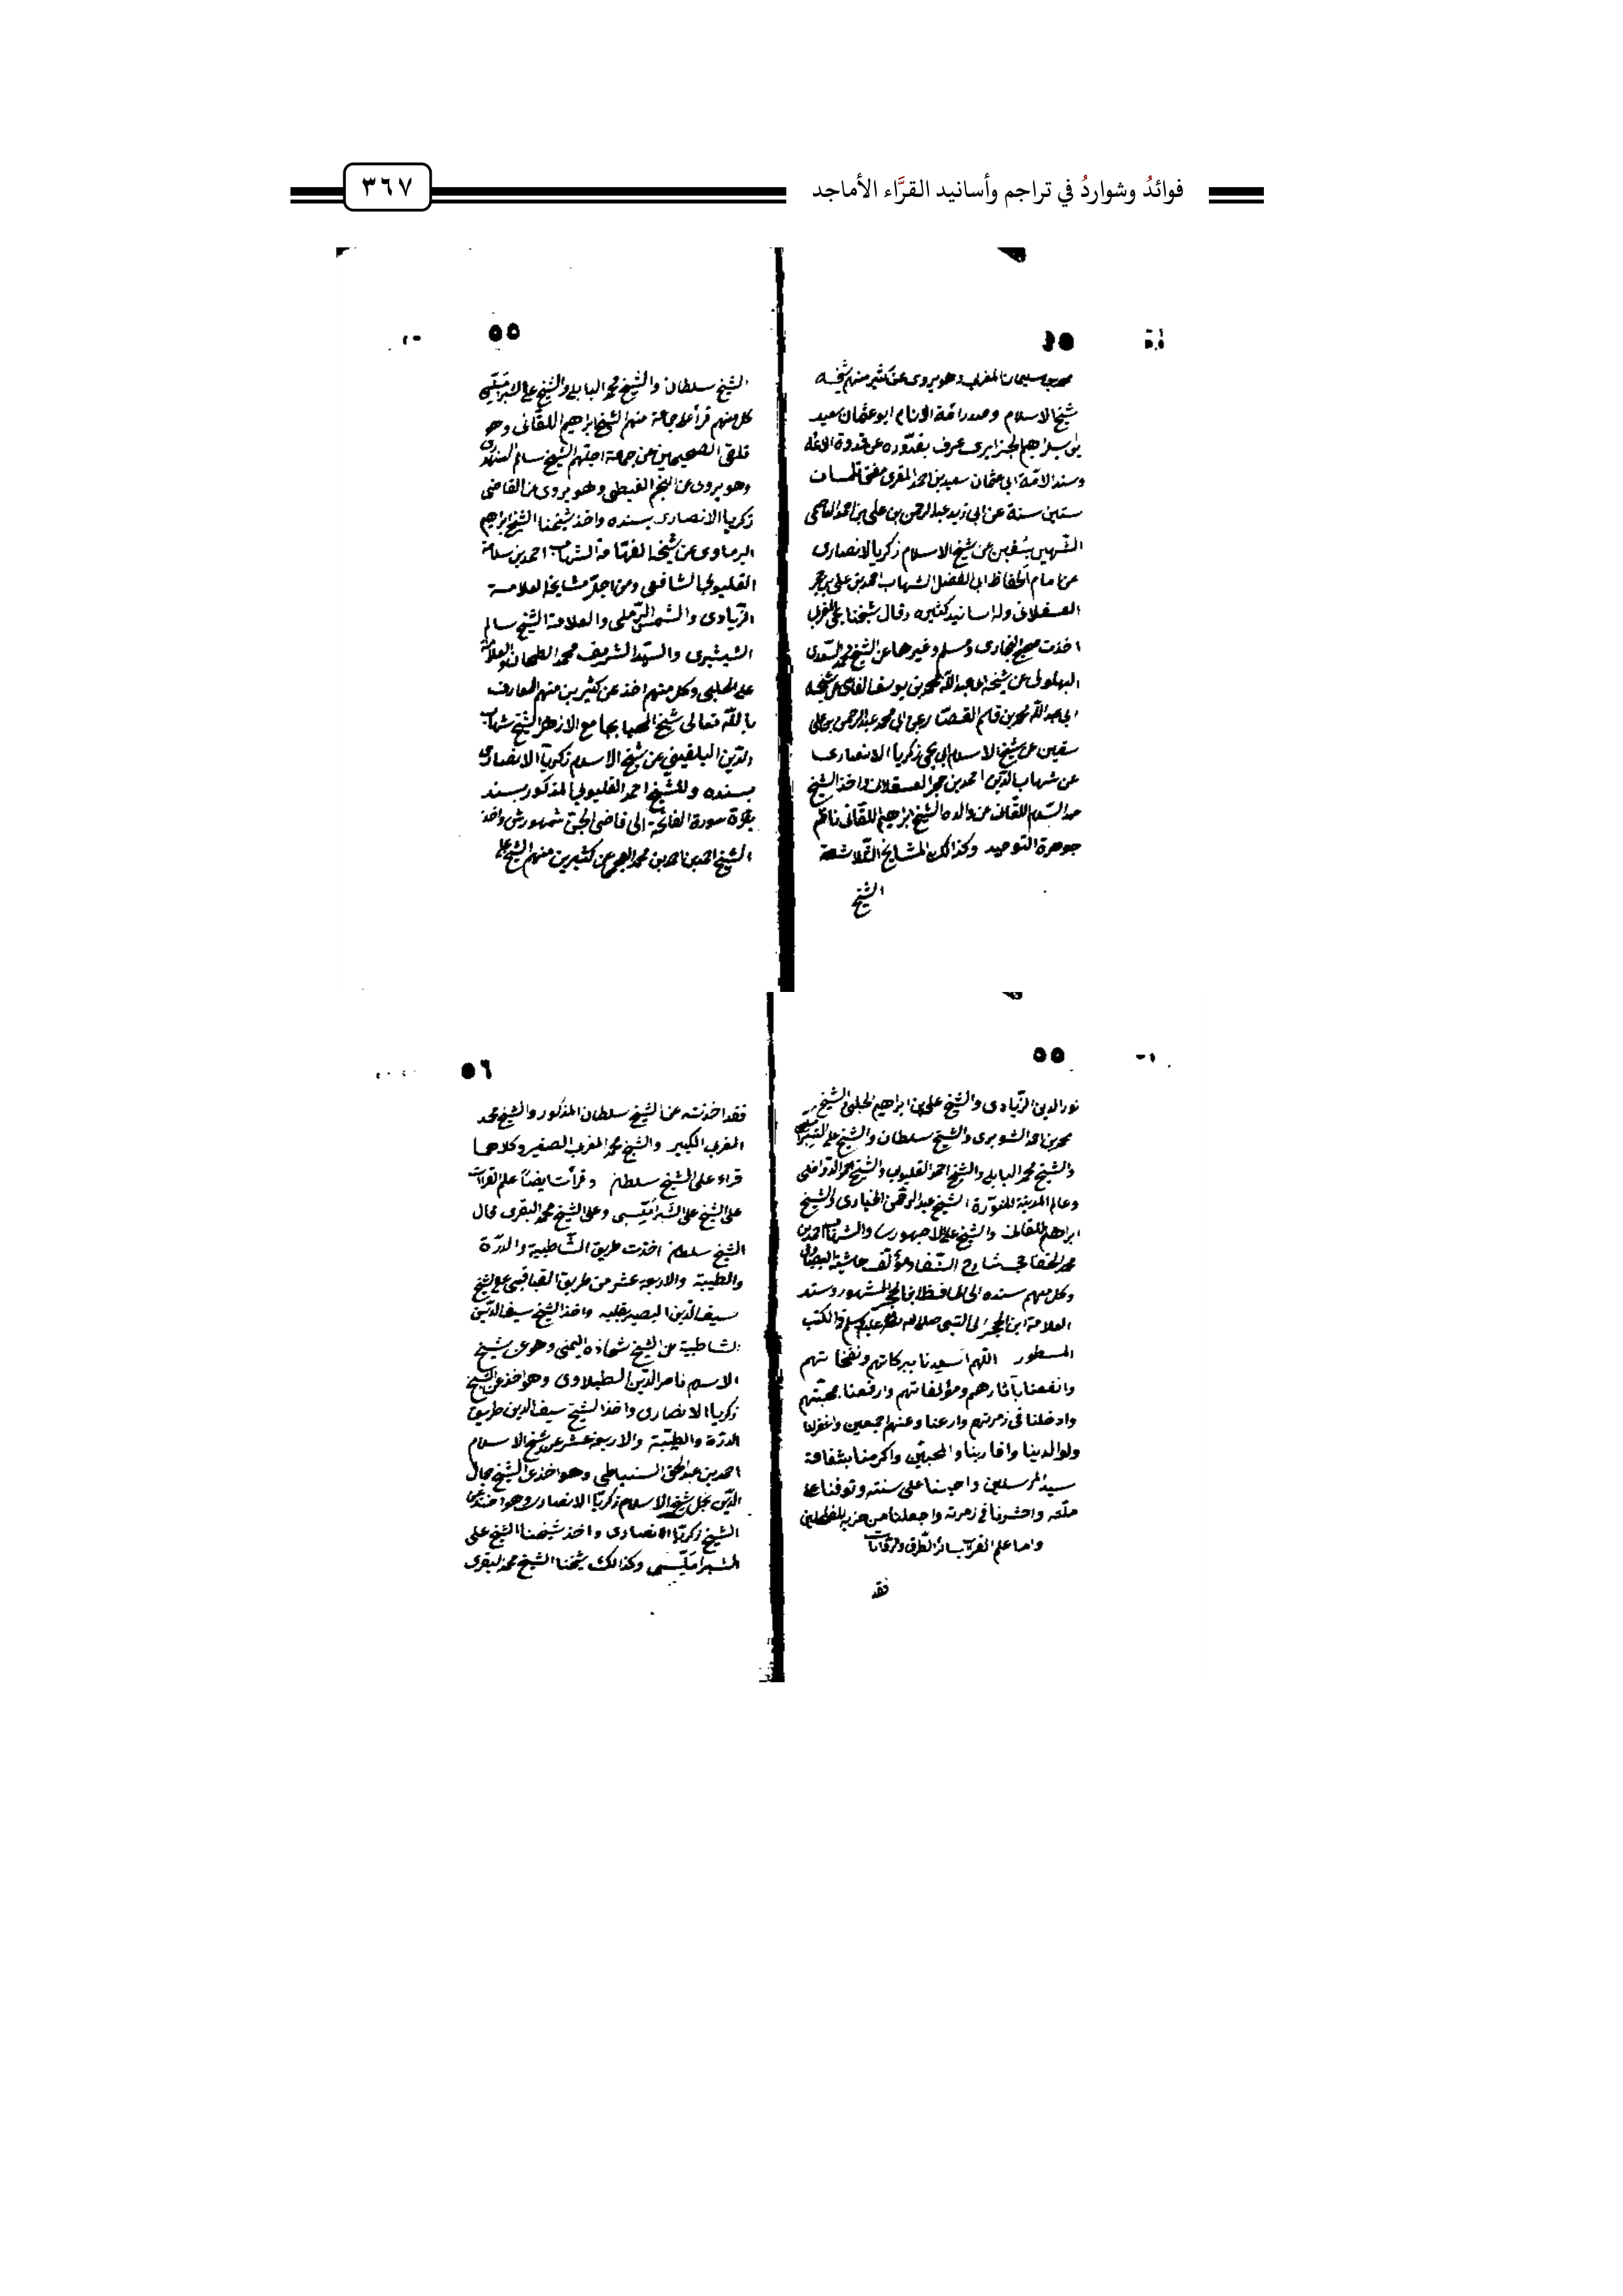 فوائدُ وشواردُ في تراجم وأسانيد القرَّاء الأماجد
٣٦٧
محمد بن سليمان المغربى وهو يروى عن كثير منهم شيخه
شيخ الاسلام وصدر ائمة الانام ابو عثمان سعيد
بن ابراهيم الجزايرى عرف بقدّوره عن قدوة الائمة
وسند الامة ابى عثمان سعيد بن احمد المقرى مفتى تلمسان
ستين سنة عن ابى زيد عبد الرحمن بن على بن احمد العاصمى
الشهير بسُقين عن شيخ الاسلام زكريا الانصارى
عن امام الحفاظ ابى الفضل الشهاب احمد بن على بن حجر
العسقلانى وله اسانيد كثيره وقال شيخنا يحيى المغربى
اخذت صحيح البخارى ومسلم وغيرها عن الشيخ محمد السعدى
البهلولى عن شيخه ابى عبد الله محمد بن يوسف عن شيخه
ابى عبد الله محمد بن قاسم القصار عن ابى محمد عبد الرحمن بن على
سقين عن شيخ الاسلام ابى يحيى زكريا الانصارى
عن شهاب الدين احمد بن حجر العسقلانى واخذ الشيخ
عبد السلام اللقانى عن والده الشيخ ابراهيم اللقانى ناظم
جوهرة التوحيد وكذالك المشايخ الثلاثة
الشيخ
٥٥
الشيخ سلطان والشيخ محمد البابلى والشيخ على الشبراملسى
كل منهم قرأ على جماعة منهم الشيخ ابراهيم اللقانى وهو
تلقى الصحيحين عن جماعة اجلهم الشيخ سالم السنهورى
وهو يروى عن النجم الغيطى وهو يروى عن القاضى
زكريا الانصارى بسنده واخذ شيخنا الشيخ ابراهيم
البرماوى عن شيخه الفهّامة الشهاب احمد بن سلامة
القليوبى الشافعى ومن اجلّ مشايخه العلامة
الزّيادى والشمس الرّملى والعلامة الشيخ سالم
الشبشيرى والسيد الشريف محمد والعلامة
على الحلبى وكل منهم اخذ عن كثيرين منهم العارف
بالله تعالى شيخ المحيا بجامع الازهر الشيخ شهاب
الدّين البلقينى عن شيخ الاسلام زكريّا الانصارى
بسنده وللشيخ احمد القليوبى المذكور سند
بقرأة سورة الفاتحة الى قاضى الجنّ شمهورش واخذ
الشيخ احمد بن محمد عن كثيرين منهم الشيخ على
٥٥
نور الدين الزّيادى والشيخ على بن ابراهيم الحلبى والشيخ
محمد بن احمد الشوبرى والشيخ سلطان والشيخ على الشبراملسى
والشيخ محمد البابلى والشيخ احمد القليوبى والشيخ
وعالم المدينة المنوّرة الشيخ عبد الرحمن الخيارى والشيخ
ابراهيم اللقانى والشيخ على الاجهورى والشهاب احمد بن
محمد الخفاجى شارح الشفاء ومؤلّف حاشية البيضاوى
وكل منهم سنده الى الحافظ ابن الحجر المشهور وسند
العلامة ابن الحجر الى النبى صلى الله تعالى عليه وسلم فى الكتب
المسطور اللهم اسعدنا ببركاتهم ونفحاتهم
وانفعنا بآثارهم ومؤلفاتهم وارفعنا بمحبّتهم
وادخلنا فى زمرتهم وارعنا وعنهم اجمعين واغفر لنا
ولوالدينا واقاربنا والمحبّين واكرمنا بشفاعة
سيد المرسلين واحينا على سنته وتوفنا على
ملّته واحشرنا فى زمرته واجعلنا من حزبه المفلحين
واما علم القرآت بسائر الطّرق والروايات
فقد
٥٦
فقد اخذته عن الشيخ سلطان المذكور والشيخ محمد
المغربى الكبير والشيخ محمد المغربى الصغير وكلاهما
قراء على الشيخ سلطان وقرأت ايضاً علم القرآت
على الشيخ على الشبراملّسى وعلى الشيخ محمد البقرى قال
الشيخ سلطان اخذت طريق الشّاطبية والدرّة
والطيبة والاربعة عشر من طريق القباقبى عن الشيخ
سيف الدّين البصير بقلبه واخذ الشيخ سيف الدّين
الشاطبية عن الشيخ شحاذه اليمنى وهو عن شيخ
الاسلام ناصر الدّين الطبلاوى وهو اخذ عن الشيخ
زكريا الانصارى واخذ الشيخ سيف الدين طريق
الدرّة والطيّبة والاربعة عشر عن شيخ الاسلام
احمد بن عبد الحق السنباطى وهو اخذ عن الشيخ جمال
الدّين نجل شيخ الاسلام زكريّا الانصارى وهو اخذ عن
الشيخ زكريّا الانصارى واخذ شيخنا الشيخ على
الشبراملّسى وكذالك شيخنا الشيخ محمد البقرى